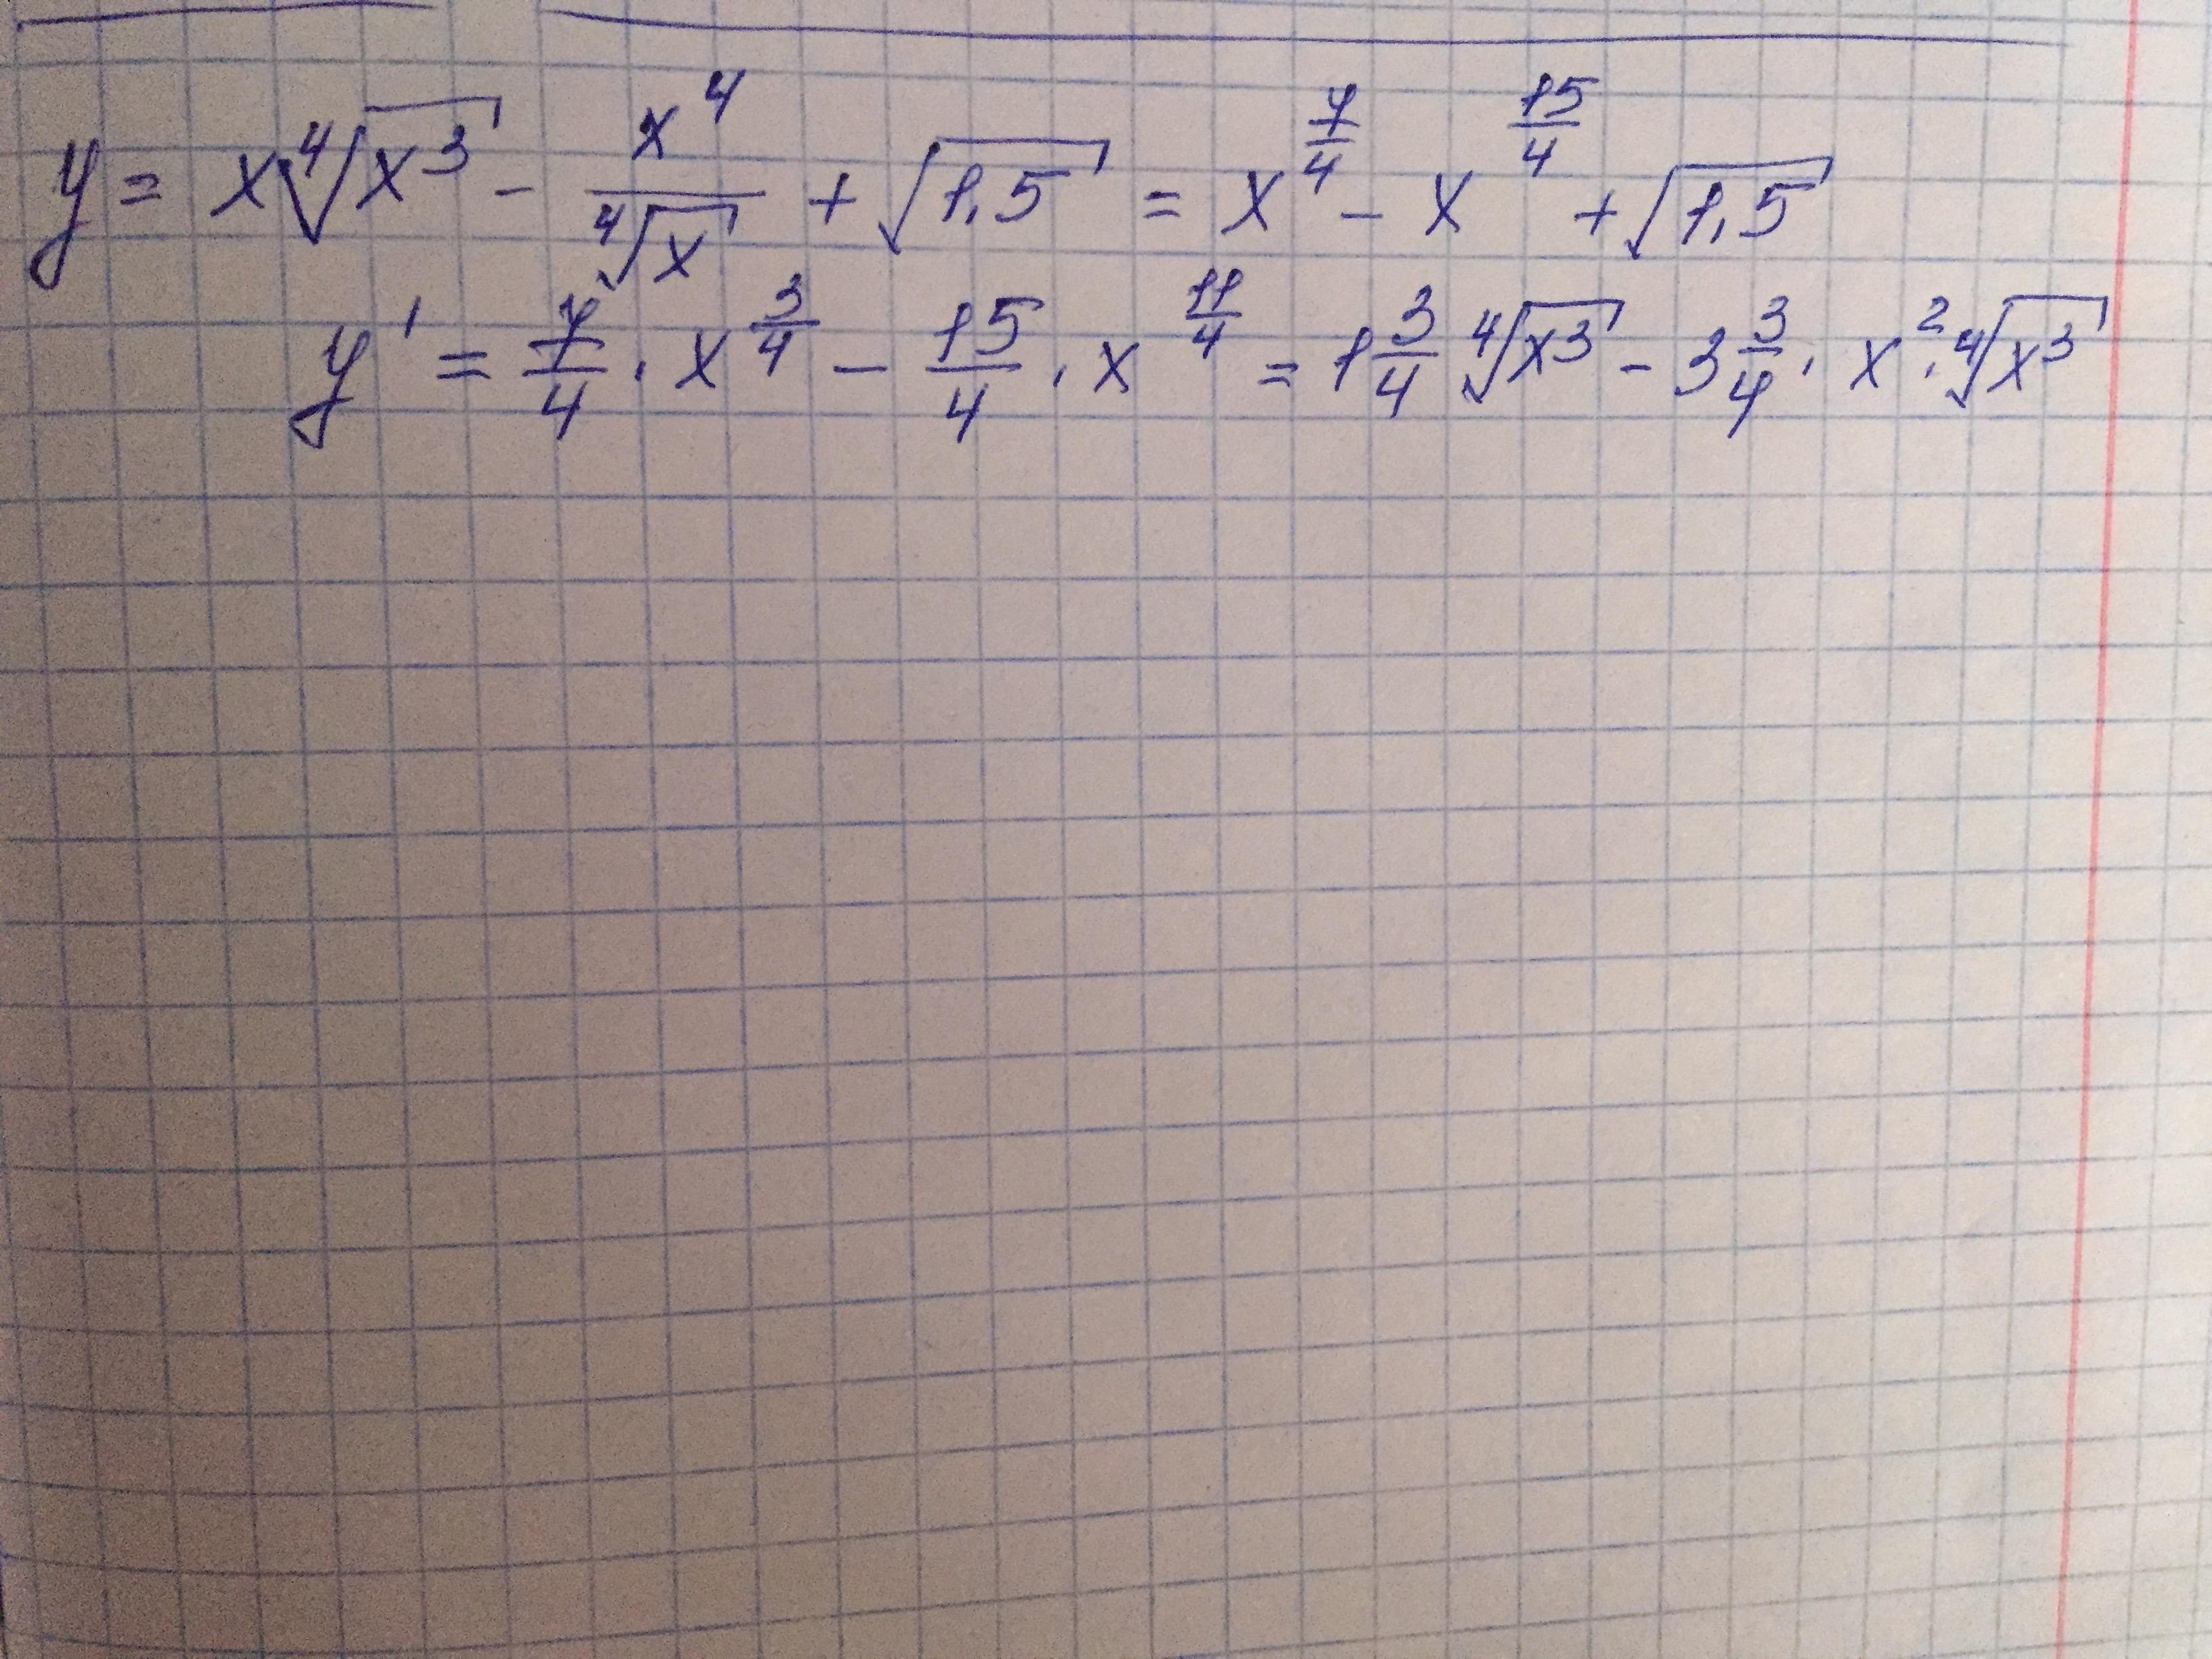 y = x∜x³ - x⁴/∜x + √1,5 = x^(7/4) - x^(15/4) + √1,5
y' = 7/4 · x^(3/4) - 15/4 · x^(11/4) = 1 3/4 ∜x³ - 3 3/4 · x² · ∜x³